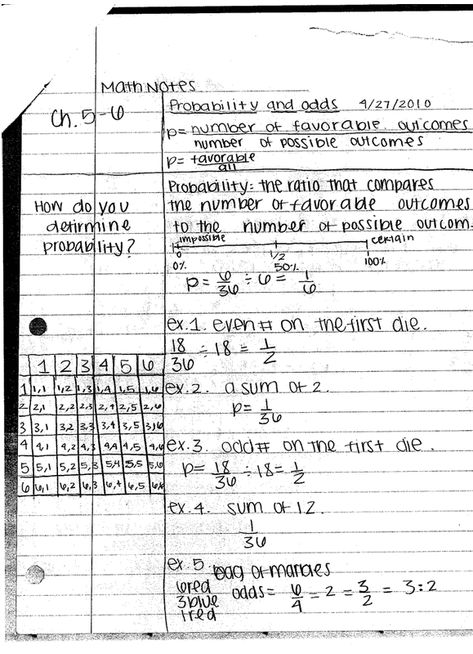 Math Notes
Ch. 5-6
Probability and odds 4/27/2010
p= number of favorable outcomes
number of possible outcomes
p= favorable
all
How do you
detirmine
probability?
Probability: the ratio that compares
the number of favorable outcomes
to the number of possible outcom.
impossible certain
0 1/2
0% 50% 100%
p = 6/36 ÷ 6 = 1/6
ex.1. even# on the first die.
18/36 ÷ 18 = 1/2
1 2 3 4 5 6
1 1,1 1,2 1,3 1,4 1,5 1,6
2 2,1 2,2 2,3 2,4 2,5 2,6
3 3,1 3,2 3,3 3,4 3,5 3,6
4 4,1 4,2 4,3 4,4 4,5 4,6
5 5,1 5,2 5,3 5,4 5,5 5,6
6 6,1 6,2 6,3 6,4 6,5 6,6
ex.2. a sum of 2.
p= 1/36
ex.3. odd# on the first die.
p= 18/36 ÷ 18 = 1/2
ex.4. sum of 12.
1/36
ex.5 bag of marbles
6red
3blue
1red
odds = 6/4 ÷ 2 = 3/2 = 3:2